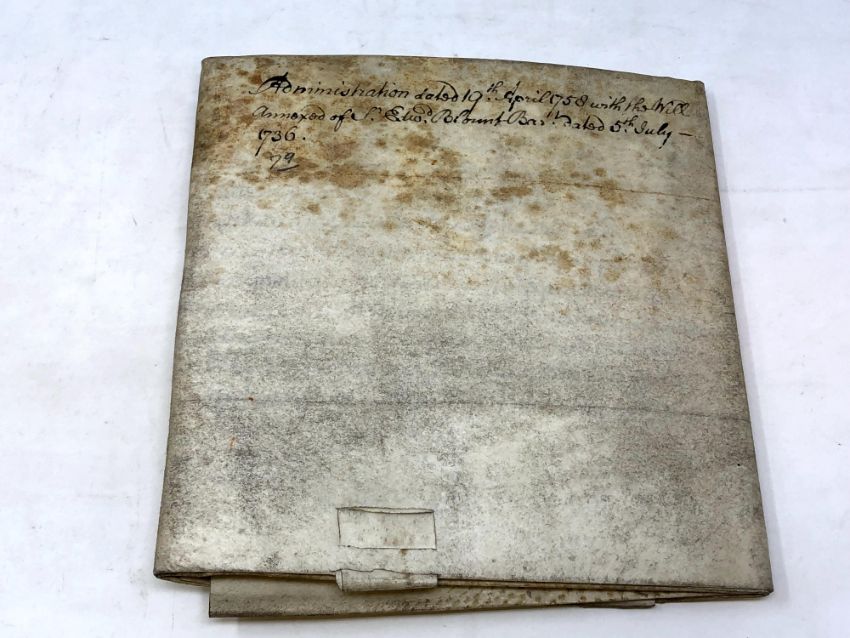 Administration dated 19th April 1758 with the Will
Annexed of Sr. Edwd. Blount Bart. dated 5th. July —
1736.